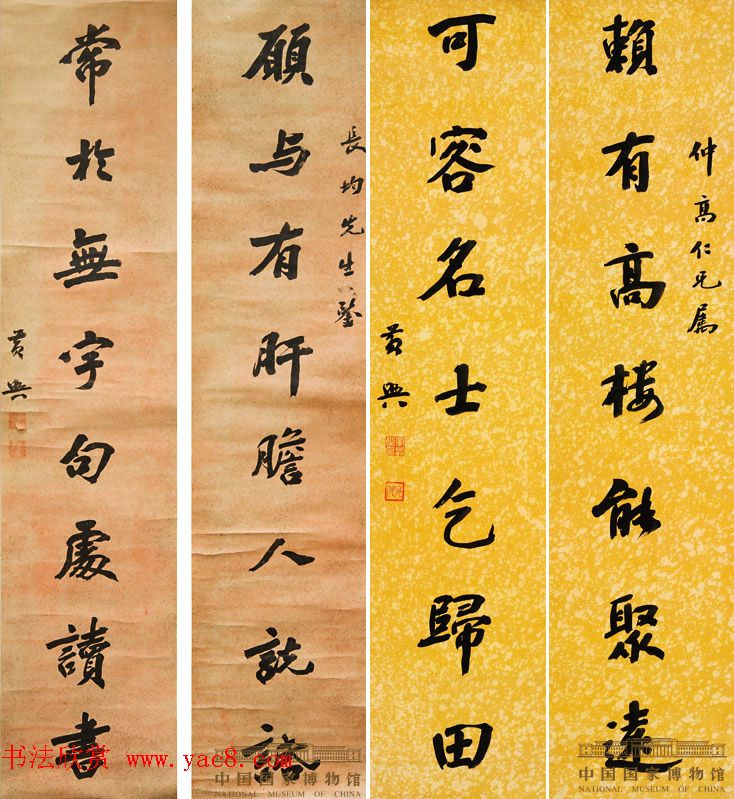 賴有高樓能聚遠
仲高仁兄屬
可容名士乞歸田
黃興
願与有肝膽人說
長均先生鑒
常於無字句處讀書
黃興
书法欣赏 www.yac8.com
中国国家博物馆
NATIONAL MUSEUM OF CHINA
中国国家博物馆
NATIONAL MUSEUM OF CHINA